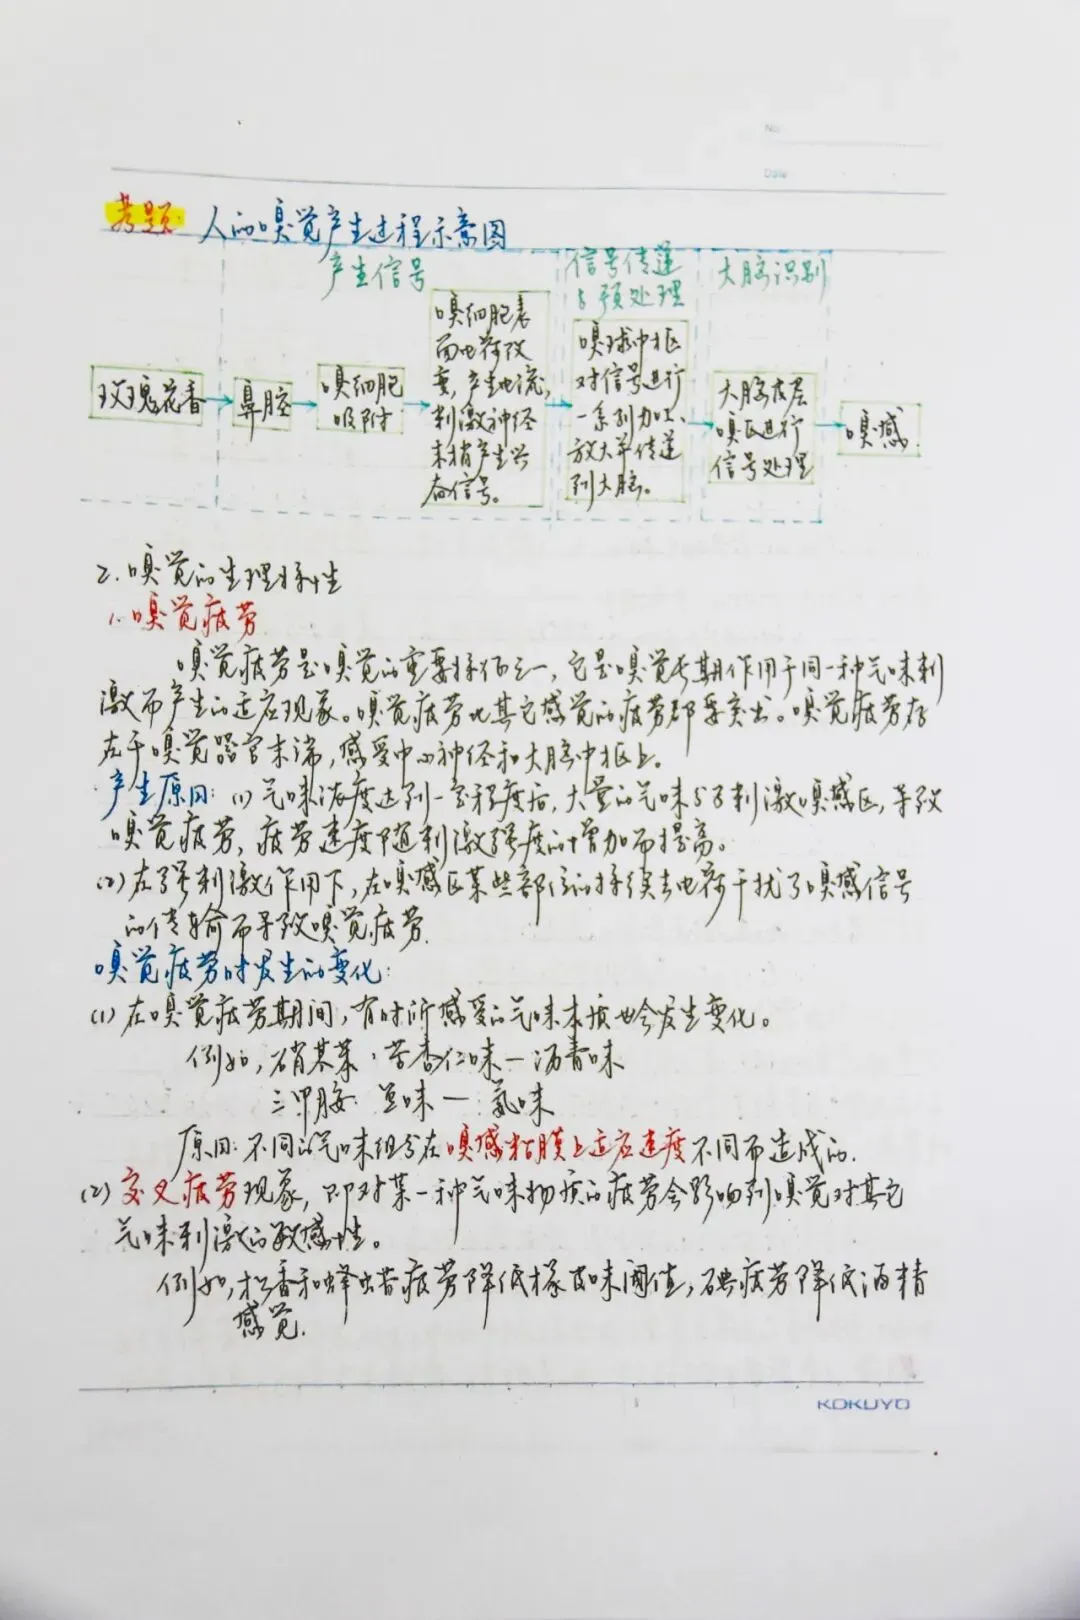 No.
Date
考题: 人的嗅觉产生过程示意图
产生信号
信号传递
与预处理
大脑识别
玫瑰花香
鼻腔
嗅细胞
吸附
嗅细胞表
面电荷改
变,产生电流,
刺激神经
末梢产生兴
奋信号。
嗅球中枢
对信号进行
一系列加工、
放大并传递
到大脑。
大脑皮层
嗅区进行
信号处理
嗅感.
2.嗅觉的生理特性
1.嗅觉疲劳
嗅觉疲劳是嗅觉的重要特征之一,它是嗅觉长期作用于同一种气味刺
激而产生的适应现象。嗅觉疲劳比其它感觉的疲劳都要突出。嗅觉疲劳存
在于嗅觉器官末端,感受中心神经和大脑中枢上。
产生原因:(1)气味浓度达到一定程度后,大量的气味分子刺激嗅感区,导致
嗅觉疲劳,疲劳速度随刺激强度的增加而提高。
(2)在强刺激作用下,在嗅感区某些部位的持续失去电荷干扰了嗅感信号
的传输而导致嗅觉疲劳.
嗅觉疲劳时发生的变化:
(1)在嗅觉疲劳期间,有时所感受的气味本质也会发生变化。
例如,硝基苯:苦杏仁味—沥青味
三甲胺:鱼味—氨味
原因:不同的气味组分在嗅感粘膜上适应速度不同而造成的.
(2)交叉疲劳现象,即对某一种气味物质的疲劳会影响到嗅觉对其它
气味刺激的敏感性。
例如,松香和蜂蜡疲劳降低橡皮味阈值,碘疲劳降低酒精
感觉.
KOKUYO